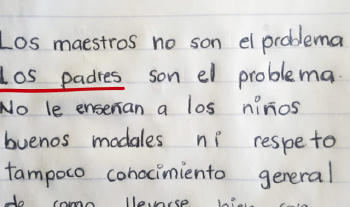 Los maestros no son el problema
Los padres son el problema.
No le enseñan a los niños
buenos modales ni respeto
tampoco conocimiento general
de como llevarse bien